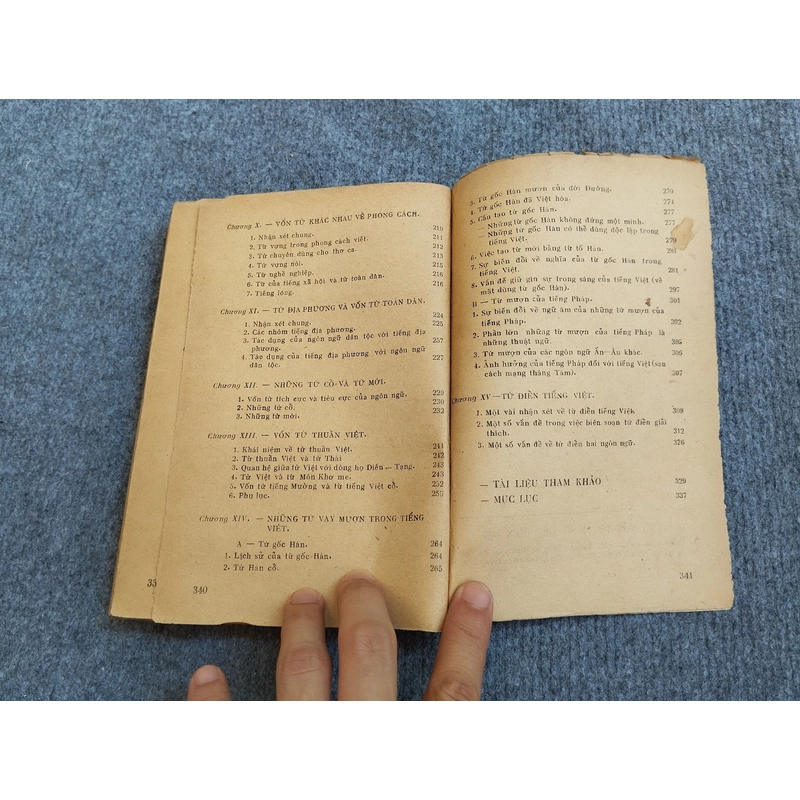 Chương X. — VỐN TỪ KHÁC NHAU VỀ PHONG CÁCH.
1. Nhận xét chung. 210
2. Từ vựng trong phong cách viết. 211
3. Từ chuyên dùng cho thơ ca. 212
4. Từ vựng nói. 213
5. Từ nghề nghiệp. 215
6. Từ của tiếng xã hội và từ toàn dân. 216
7. Tiếng lóng. 216
Chương XI. — TỪ ĐỊA PHƯƠNG VÀ VỐN TỪ TOÀN DÂN.
1. Nhận xét chung. 224
2. Các nhóm tiếng địa phương. 225
3. Tác dụng của ngôn ngữ dân tộc với tiếng địa
phương. 257
4. Tác dụng của tiếng địa phương với ngôn ngữ
dân tộc. 227
Chương XII. — NHỮNG TỪ CỔ VÀ TỪ MỚI.
1. Vốn từ tích cực và tiêu cực của ngôn ngữ. 229
2. Những từ cổ. 230
3. Những từ mới. 232
Chương XIII. — VỐN TỪ THUẦN VIỆT.
1. Khái niệm về từ thuần Việt. 241
2. Từ thuần Việt và từ Thái 242
3. Quan hệ giữa từ Việt với dòng họ Điền — Tạng. 243
4. Từ Việt và từ Môn Khơ me. 243
5. Vốn từ tiếng Mường và từ tiếng Việt cổ. 252
6. Phụ lục. 253
Chương XIV. — NHỮNG TỪ VAY MƯỢN TRONG TIẾNG
VIỆT.
A — Từ gốc Hán. 264
1. Lịch sử của từ gốc Hán. 264
2. Từ Hán cổ. 265
33
340
3. Từ gốc Hán mượn của đời Đường. 270
4. Từ gốc Hán đã Việt hóa. 274
5. Cấu tạo từ gốc Hán. 277
— Những từ gốc Hán không đứng một mình. 277
— Những từ gốc Hán có thể dùng độc lập trong
tiếng Việt. 279
6. Việc tạo từ mới bằng từ tố Hán. 280
7. Sự biến đổi về nghĩa của từ gốc Hán trong
tiếng Việt. 281
8. Vấn đề giữ gìn sự trong sáng của tiếng Việt (về
mặt dùng từ gốc Hán). 297
B — Từ mượn của tiếng Pháp. 301
1. Sự biến đổi về ngữ âm của những từ mượn của
tiếng Pháp. 302
2. Phần lớn những từ mượn của tiếng Pháp là
những thuật ngữ. 305
3. Từ mượn của các ngôn ngữ Ấn—Âu khác. 306
4. Ảnh hưởng của tiếng Pháp đối với tiếng Việt (sau
cách mạng tháng Tám). 307
Chương XV — TỪ ĐIỂN TIẾNG VIỆT.
1. Một vài nhận xét về từ điển tiếng Việt. 309
2. Một số vấn đề trong việc biên soạn từ điển giải
thích. 312
3. Một số vấn đề về từ điển hai ngôn ngữ. 326
— TÀI LIỆU THAM KHẢO 329
— MỤC LỤC 337
341